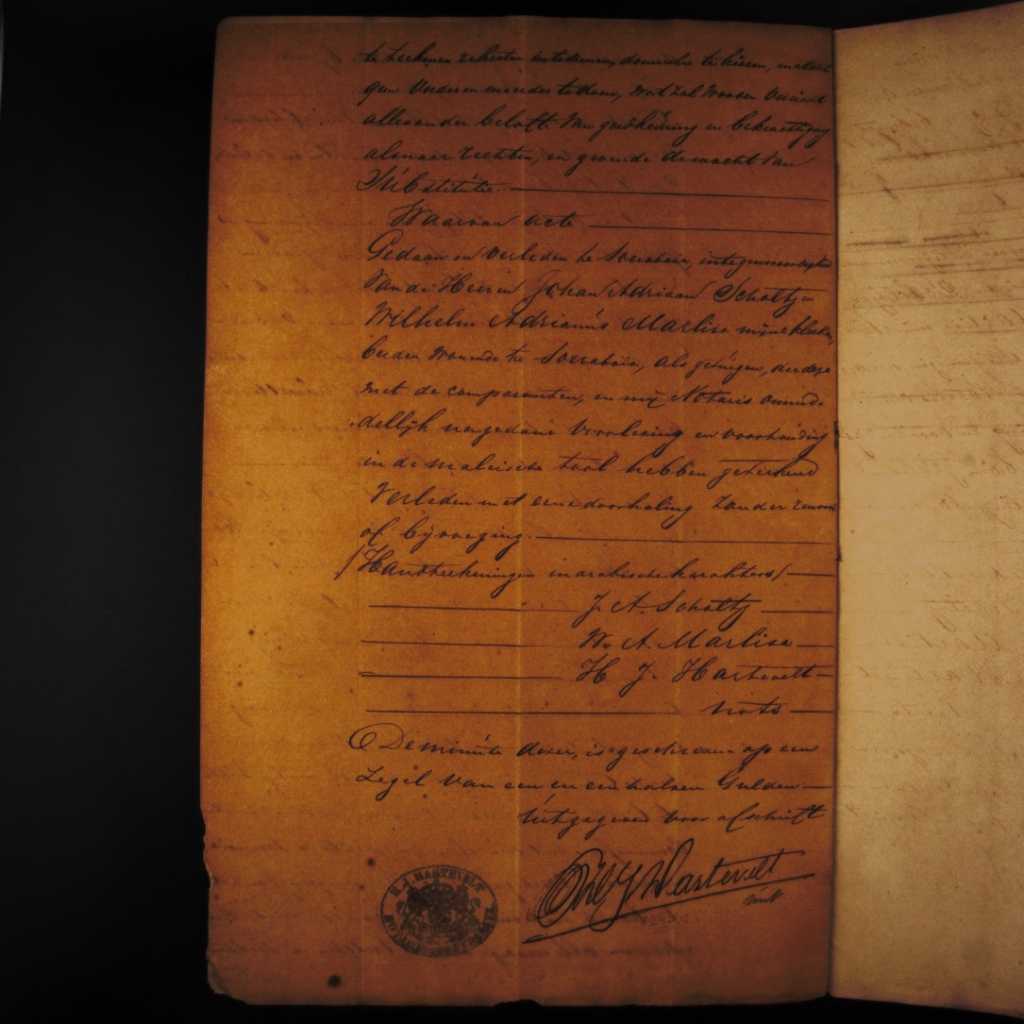 te teekenen domicilie te kiezen,
gen
alles onder belofte van goedkeuring en bekrachtiging
als naar rechten, en gemelde de macht van
Substitutie
Waarvan acte
Gedaan en verleden te Soerabaia, in tegenwoordigheid
van de Heeren Johan Adriaan Scholtz en
Wilhelm Adrianus Marlisa mijne klerken,
beiden wonende te Soerabaia, als getuigen, die deze
met de comparanten, en mij Notaris onmid-
dellijk na gedane voorlezing en voorhouding
in de maleische taal hebben geteekend
Verleden met eene doorhaling zonder
of bijvoeging.
/Handteekeningen in arabische karakters/
J. A. Scholtz
W. A. Marlisa
H J. Hartevelt
nots
De minute dezer, is geschreven op een
Zegel van een en een halven Gulden
Uitgegeven voor afschrift
Hartevelt
H. J. HARTEVELT